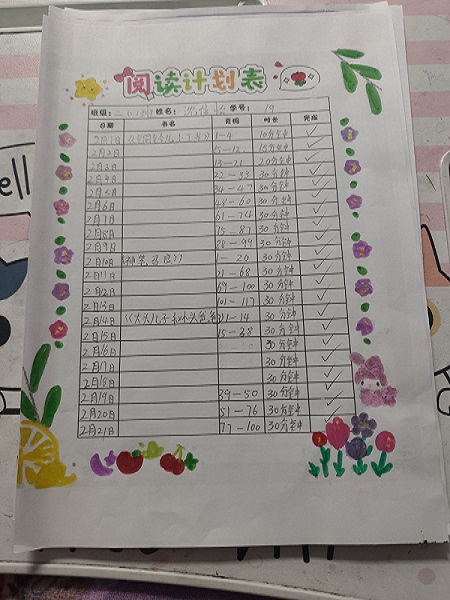 阅读计划表
班级: 姓名: 学号: 19
日期 书名 页码 时长 完成
2月1日 1-4 10分钟 ✓
2月2日 5-12 15分钟 ✓
2月3日 13-21 20分钟 ✓
2月4日 22-33 30分钟 ✓
2月5日 34-47 30分钟 ✓
2月6日 48-60 30分钟 ✓
2月7日 61-74 30分钟 ✓
2月8日 75-87 30分钟 ✓
2月9日 88-99 30分钟 ✓
2月10日 1-20 30分钟 ✓
2月11日 21-68 30分钟 ✓
2月12日 69-100 30分钟 ✓
2月13日 101-113 30分钟 ✓
2月14日 《大头儿子和小头爸爸 1-14 30分钟 ✓
2月15日 15-38 30分钟 ✓
2月16日 30分钟 ✓
2月17日 30分钟 ✓
2月18日 30分钟 ✓
2月19日 39-50 30分钟 ✓
2月20日 51-76 30分钟 ✓
2月21日 77-100 30分钟 ✓